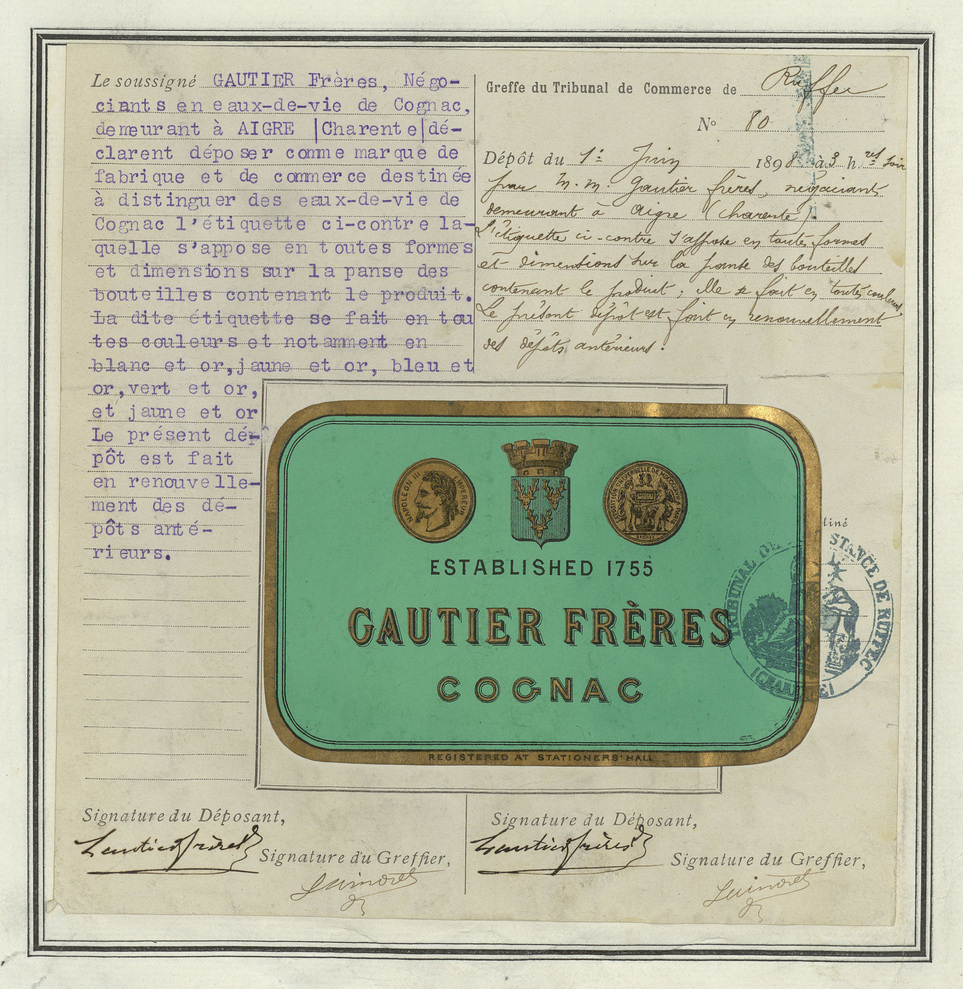 Le soussigné GAUTIER Frères, Négo-
ciants en eaux-de-vie de Cognac,
demeurant à AIGRE |Charente|dé-
clarent déposer comme marque de
fabrique et de commerce destinée
à distinguer des eaux-de-vie de
Cognac l'étiquette ci-contre la-
quelle s'appose en toutes formes
et dimensions sur la panse des
bouteilles contenant le produit.
La dite étiquette se fait en tou
tes couleurs et notamment en
blanc et or,jaune et or, bleu et
or,vert et or,
et jaune et or
Le présent dé-
pôt est fait
en renouvelle-
ment des dé-
pôts anté-
rieurs.
Greffe du Tribunal de Commerce de Ruffec
N° 80
Dépôt du 1er Juin 1898 à 3 h res soir
par M.M. Gautier frères, négociants
demeurant à Aigre (Charente).
L'étiquette ci-contre s'appose en toutes formes
et dimensions sur la panse des bouteilles
contenant le produit; elle se fait en toutes couleurs.
Le présent dépôt est fait en renouvellement
des dépôts antérieurs.
NAPOLEON III EMPEREUR
ESTABLISHED 1755
GAUTIER FRÈRES
COGNAC
REGISTERED AT STATIONERS' HALL
tiné
TRIBUNAL DE STANCE DE RUFFEC
(CHARENTE)
Signature du Déposant,
Gautier frères
Signature du Greffier,
Signature du Déposant,
Gautier frères
Signature du Greffier,